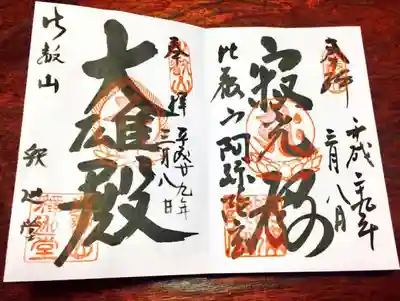 奉拝
平成二九年
三月八日
寂光殿
比叡山阿弥陀堂
奉拝
平成廿九年
三月八日
大雄殿
比叡山
釈迦堂